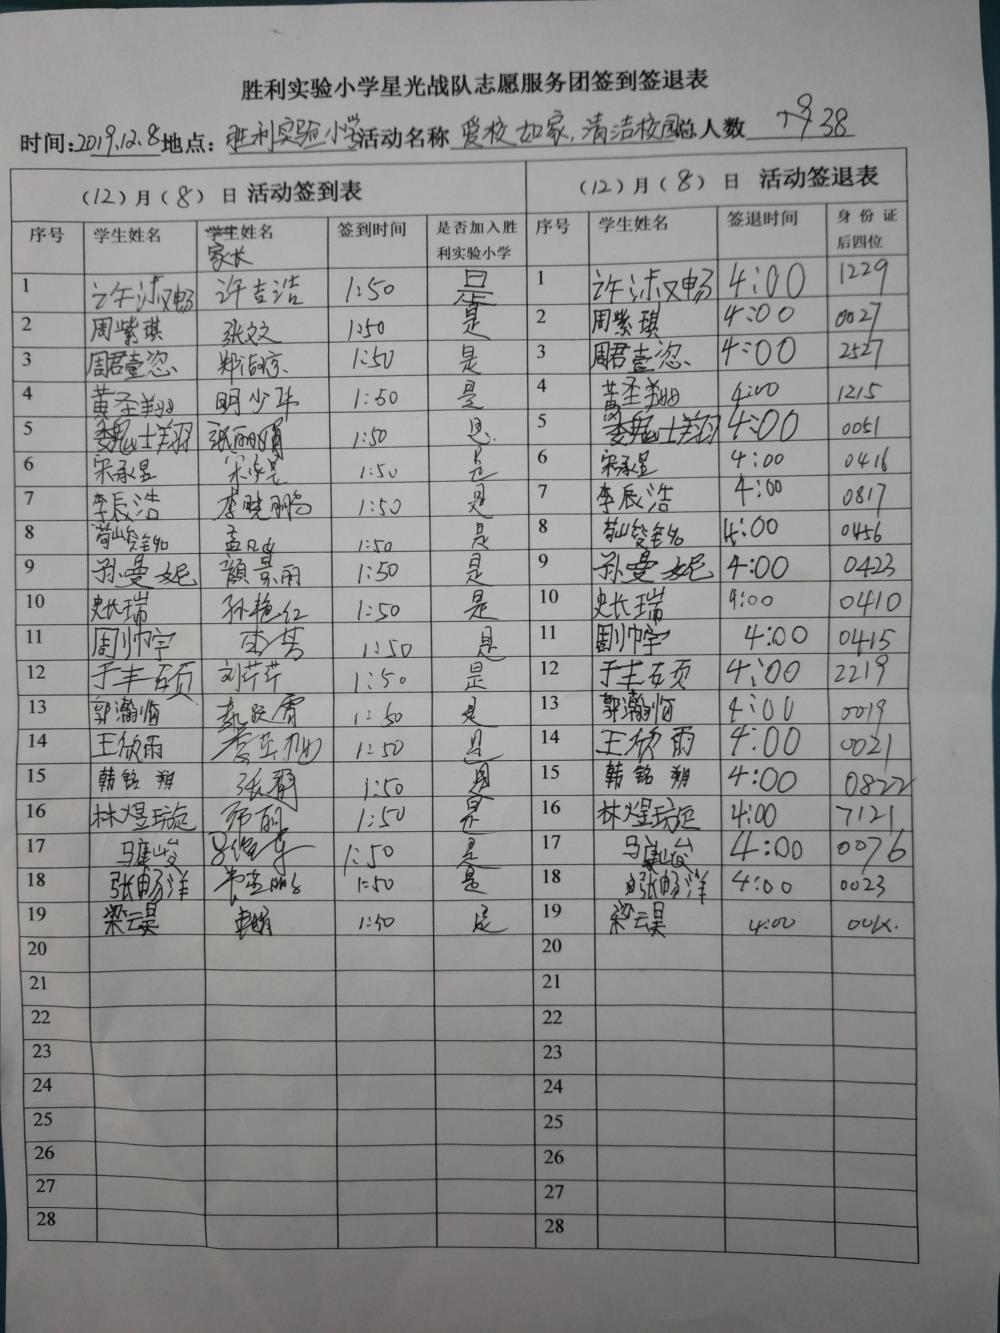 胜利实验小学星光战队志愿服务团签到签退表
时间:2019.12.8 地点:胜利实验小学 活动名称 爱校如家,清洁校园 总人数 38
(12)月(8)日 活动签到表 (12)月(8)日 活动签退表
序号 学生姓名 学生姓名 家长 签到时间 是否加入胜利实验小学 序号 学生姓名 签退时间 身份证后四位
1 许沭畅 许吉浩 1:50 是 1 许沭畅 4:00 1229
2 周紫琪 张文 1:50 是 2 周紫琪 4:00 0027
3 周君壹恣 1:50 是 3 周君壹恣 4:00 2527
4 黄圣翔 明少华 1:50 是 4 黄圣翔 4:00 1215
5 魏士翔 张丽娟 1:50 是 5 魏士翔 4:00 0051
6 宋承昱 1:50 是 6 宋承昱 4:00 0416
7 李辰浩 李晓鹏 1:50 是 7 李辰浩 4:00 0817
8 1:50 是 8 4:00 0456
9 孙曼妮 颜景丽 1:50 是 9 孙曼妮 4:00 0423
10 史长瑞 孙艳红 1:50 是 10 史长瑞 4:00 0410
11 周帅宇 1:50 是 11 周帅宇 4:00 0415
12 于丰硕 刘芹芹 1:50 是 12 于丰硕 4:00 2219
13 郭瀚恒 1:50 是 13 郭瀚恒 4:00 0019
14 王欣雨 1:50 是 14 王欣雨 4:00 0021
15 韩铭朔 张静 1:50 是 15 韩铭朔 4:00 0822
16 林煜琁 1:50 是 16 林煜琁 4:00 7121
17 马康峻 1:50 是 17 马康峻 4:00 0076
18 张畅洋 1:50 是 18 张畅洋 4:00 0023
19 梁云昊 1:50 是 19 梁云昊 4:00 001X.
20 20
21 21
22 22
23 23
24 24
25 25
26 26
27 27
28 28